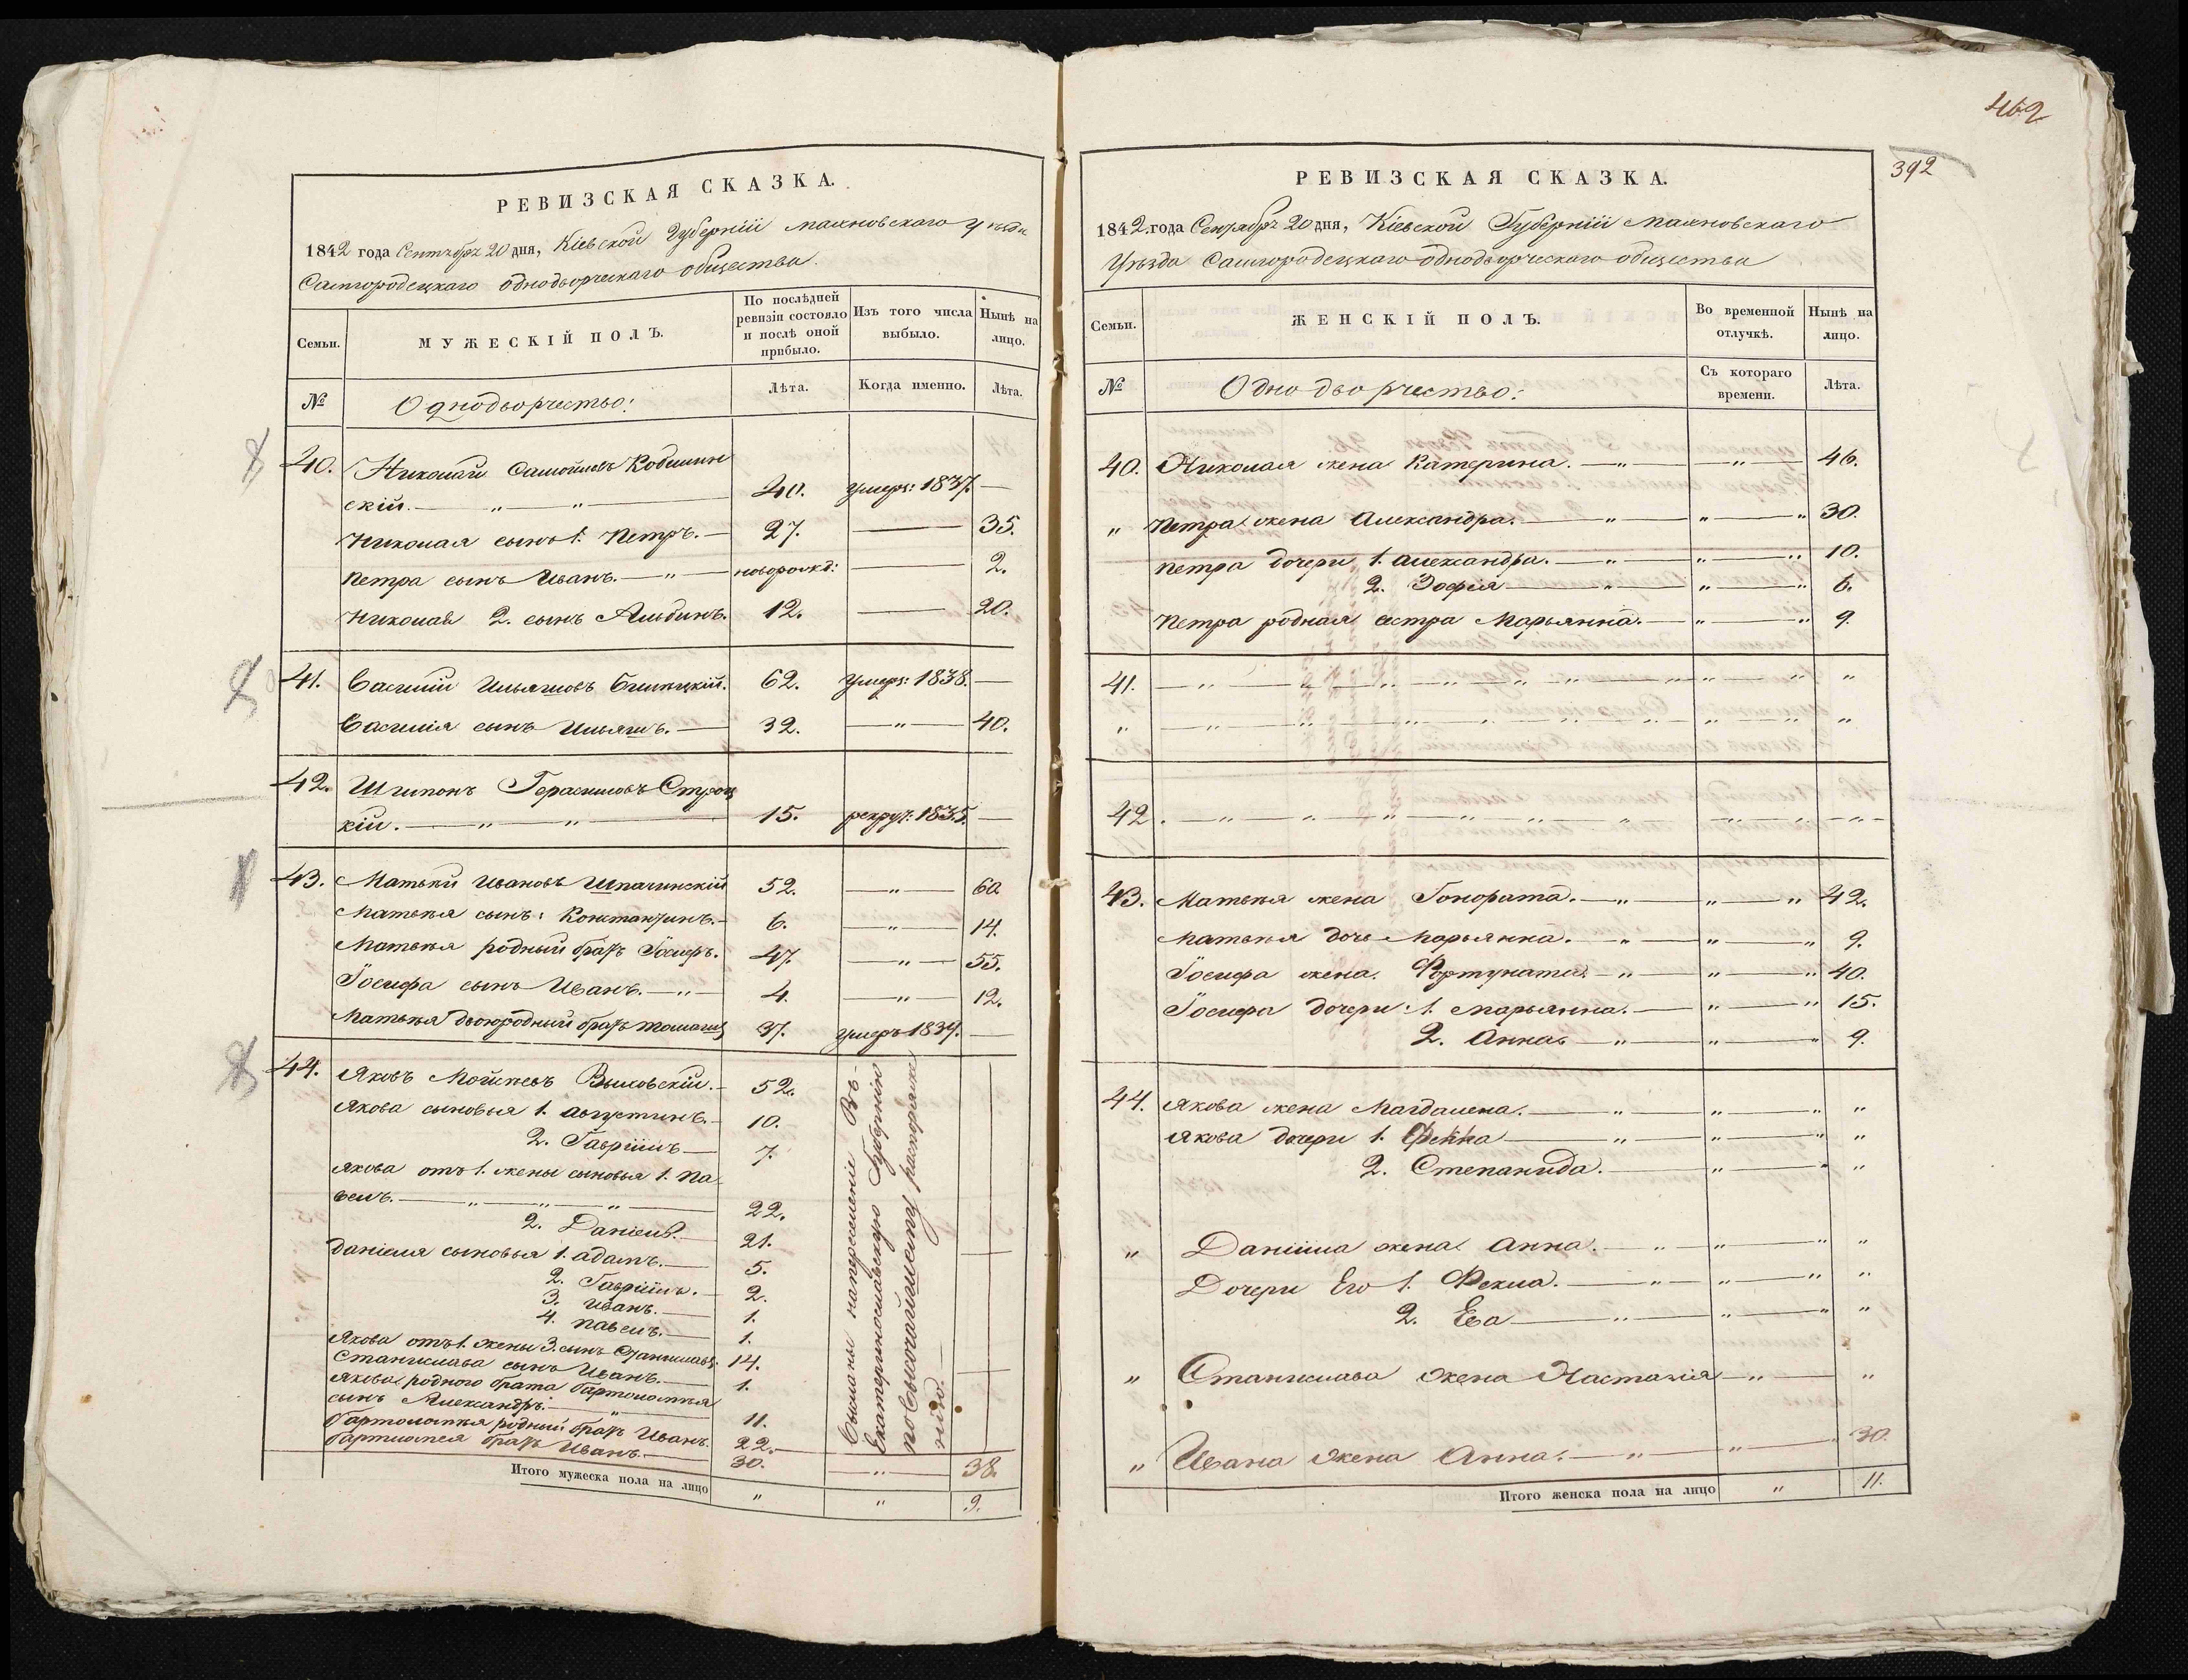 462
392
РЕВИЗСКАЯ СКАЗКА.
1842 года Сентябр 20 дня, Кіевской Губерніи Махновскаго Уѣзда
Самгородецкаго однодворческаго общества.
Семьи.
МУЖЕСКІЙ ПОЛЪ.
По послѣдней ревизіи состояло и послѣ оной прибыло.
Изъ того числа выбыло.
Нынѣ на лицо.
№
Однодворчество:
Лѣта.
Когда именно.
Лѣта.
40. Николай Самойловъ
скій. — " — " — 40. умеръ: 1837. —
Николая сынъ 1. Петръ. — 27. — 35.
Петра сынъ Иванъ. — " — новорожд: — 2.
Николая 2. сынъ Альбинъ. 12. — 20.
41. Василій Ильяшовъ 62. умеръ: 1838. —
Василія сынъ Ильяшъ. — 32. — " — 40.
42. Шимонъ Герасимовъ Строц
кій. — " — " — 15. рекрут: 1835. —
43. Матвѣй Ивановъ Шпачинскій 52. — " — 60
Матвѣя сынъ: Константинъ. — 6. — " — 14.
Матвѣя родный братъ Іосифъ. 47. — " — 55.
Іосифа сынъ Иванъ. — " — 4. — " — 12.
Матвѣя двоюродный братъ Томашъ 37. умеръ 1839. —
44. Яковъ Мойсѣевъ Выховскій. — 52.
Якова сыновья 1. Августинъ. — 10.
2. Гавріилъ — 7.
Якова отъ 1. жены сыновья 1. Па
велъ. — " — " — " — 22.
2. Даніелъ. 21.
Даніеля сыновья 1. Адамъ. — 5.
2. Гавріилъ. — 2.
3. Иванъ. — 1.
4. Павелъ. — 1.
Якова отъ 1. жены 3. сынъ Станиславъ. 14.
Станислава сынъ Иванъ. — 1.
Якова родного брата Бартоломѣя
сынъ Александръ. — " — 11.
Бартоломѣя родный братъ Иванъ. 22. —
братъ Иванъ. — 30. — " — 38.
Высланы на переселеніе Въ-
Екатеринославскую Губернію
по Высочайшему распоряже
нію. —
Итого мужеска пола на лицо " " 9.
РЕВИЗСКАЯ СКАЗКА.
1842 года Сентябр 20 дня, Кіевской Губерніи Махновскаго
Уѣзда Самгородецкаго однодворческаго общества
Семьи.
ЖЕНСКІЙ ПОЛЪ.
Во временной отлучкѣ.
Нынѣ на лицо.
№
Однодворчество:
Съ котораго времени.
Лѣта.
40. Николая жена Катерина. — " — — " — 46.
" Петра жена Александра. — " — " — " 30.
Петра дочери 1. Александра. — " — " — " 10.
2. Зофія — " — " — " 6.
Петра родная сестра Марьянна. — " — " 9.
41. — " — " — " — " — " — " — " — " "
" — " — " — " — " — " — " — " "
42. — " — " — " — " — " — " — " — " —
43. Матвѣя жена Гонората. — " — " — " 42.
Матвѣя дочь Марьянна. — " — " — " 9.
Іосифа жена. Фортуната — " — " — " 40.
Іосифа дочери: 1. Марьянна. — " — " 15.
2. Анна. — " — " — " 9.
44. Якова жена Магдалена. — " — " — " "
Якова дочери 1. Фекла — " — " — " "
2. Степанида. — " — " "
" Даніила жена Анна. — " — " — " "
Дочери Его 1. Фекла. — " — " — " "
2. Ева — " — " — " "
" Станислава жена Настазія — " — "
" Ивана жена Анна. — " — " — " 30.
Итого женска пола на лицо " 11.